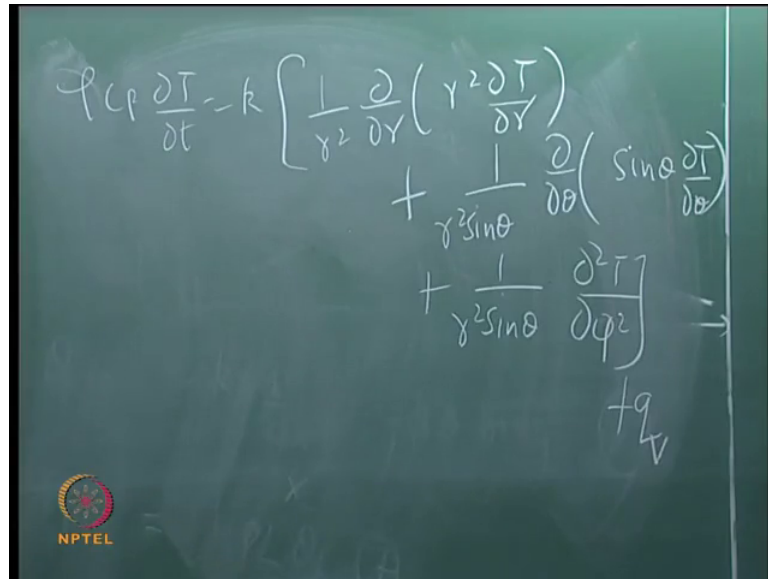 ρ Cp ∂T/∂t = k [ 1/r² ∂/∂r ( r² ∂T/∂r )
+ 1/(r² sinθ) ∂/∂θ ( sinθ ∂T/∂θ )
+ 1/(r² sinθ) ∂²T/∂φ² ]
+ q_v
NPTEL